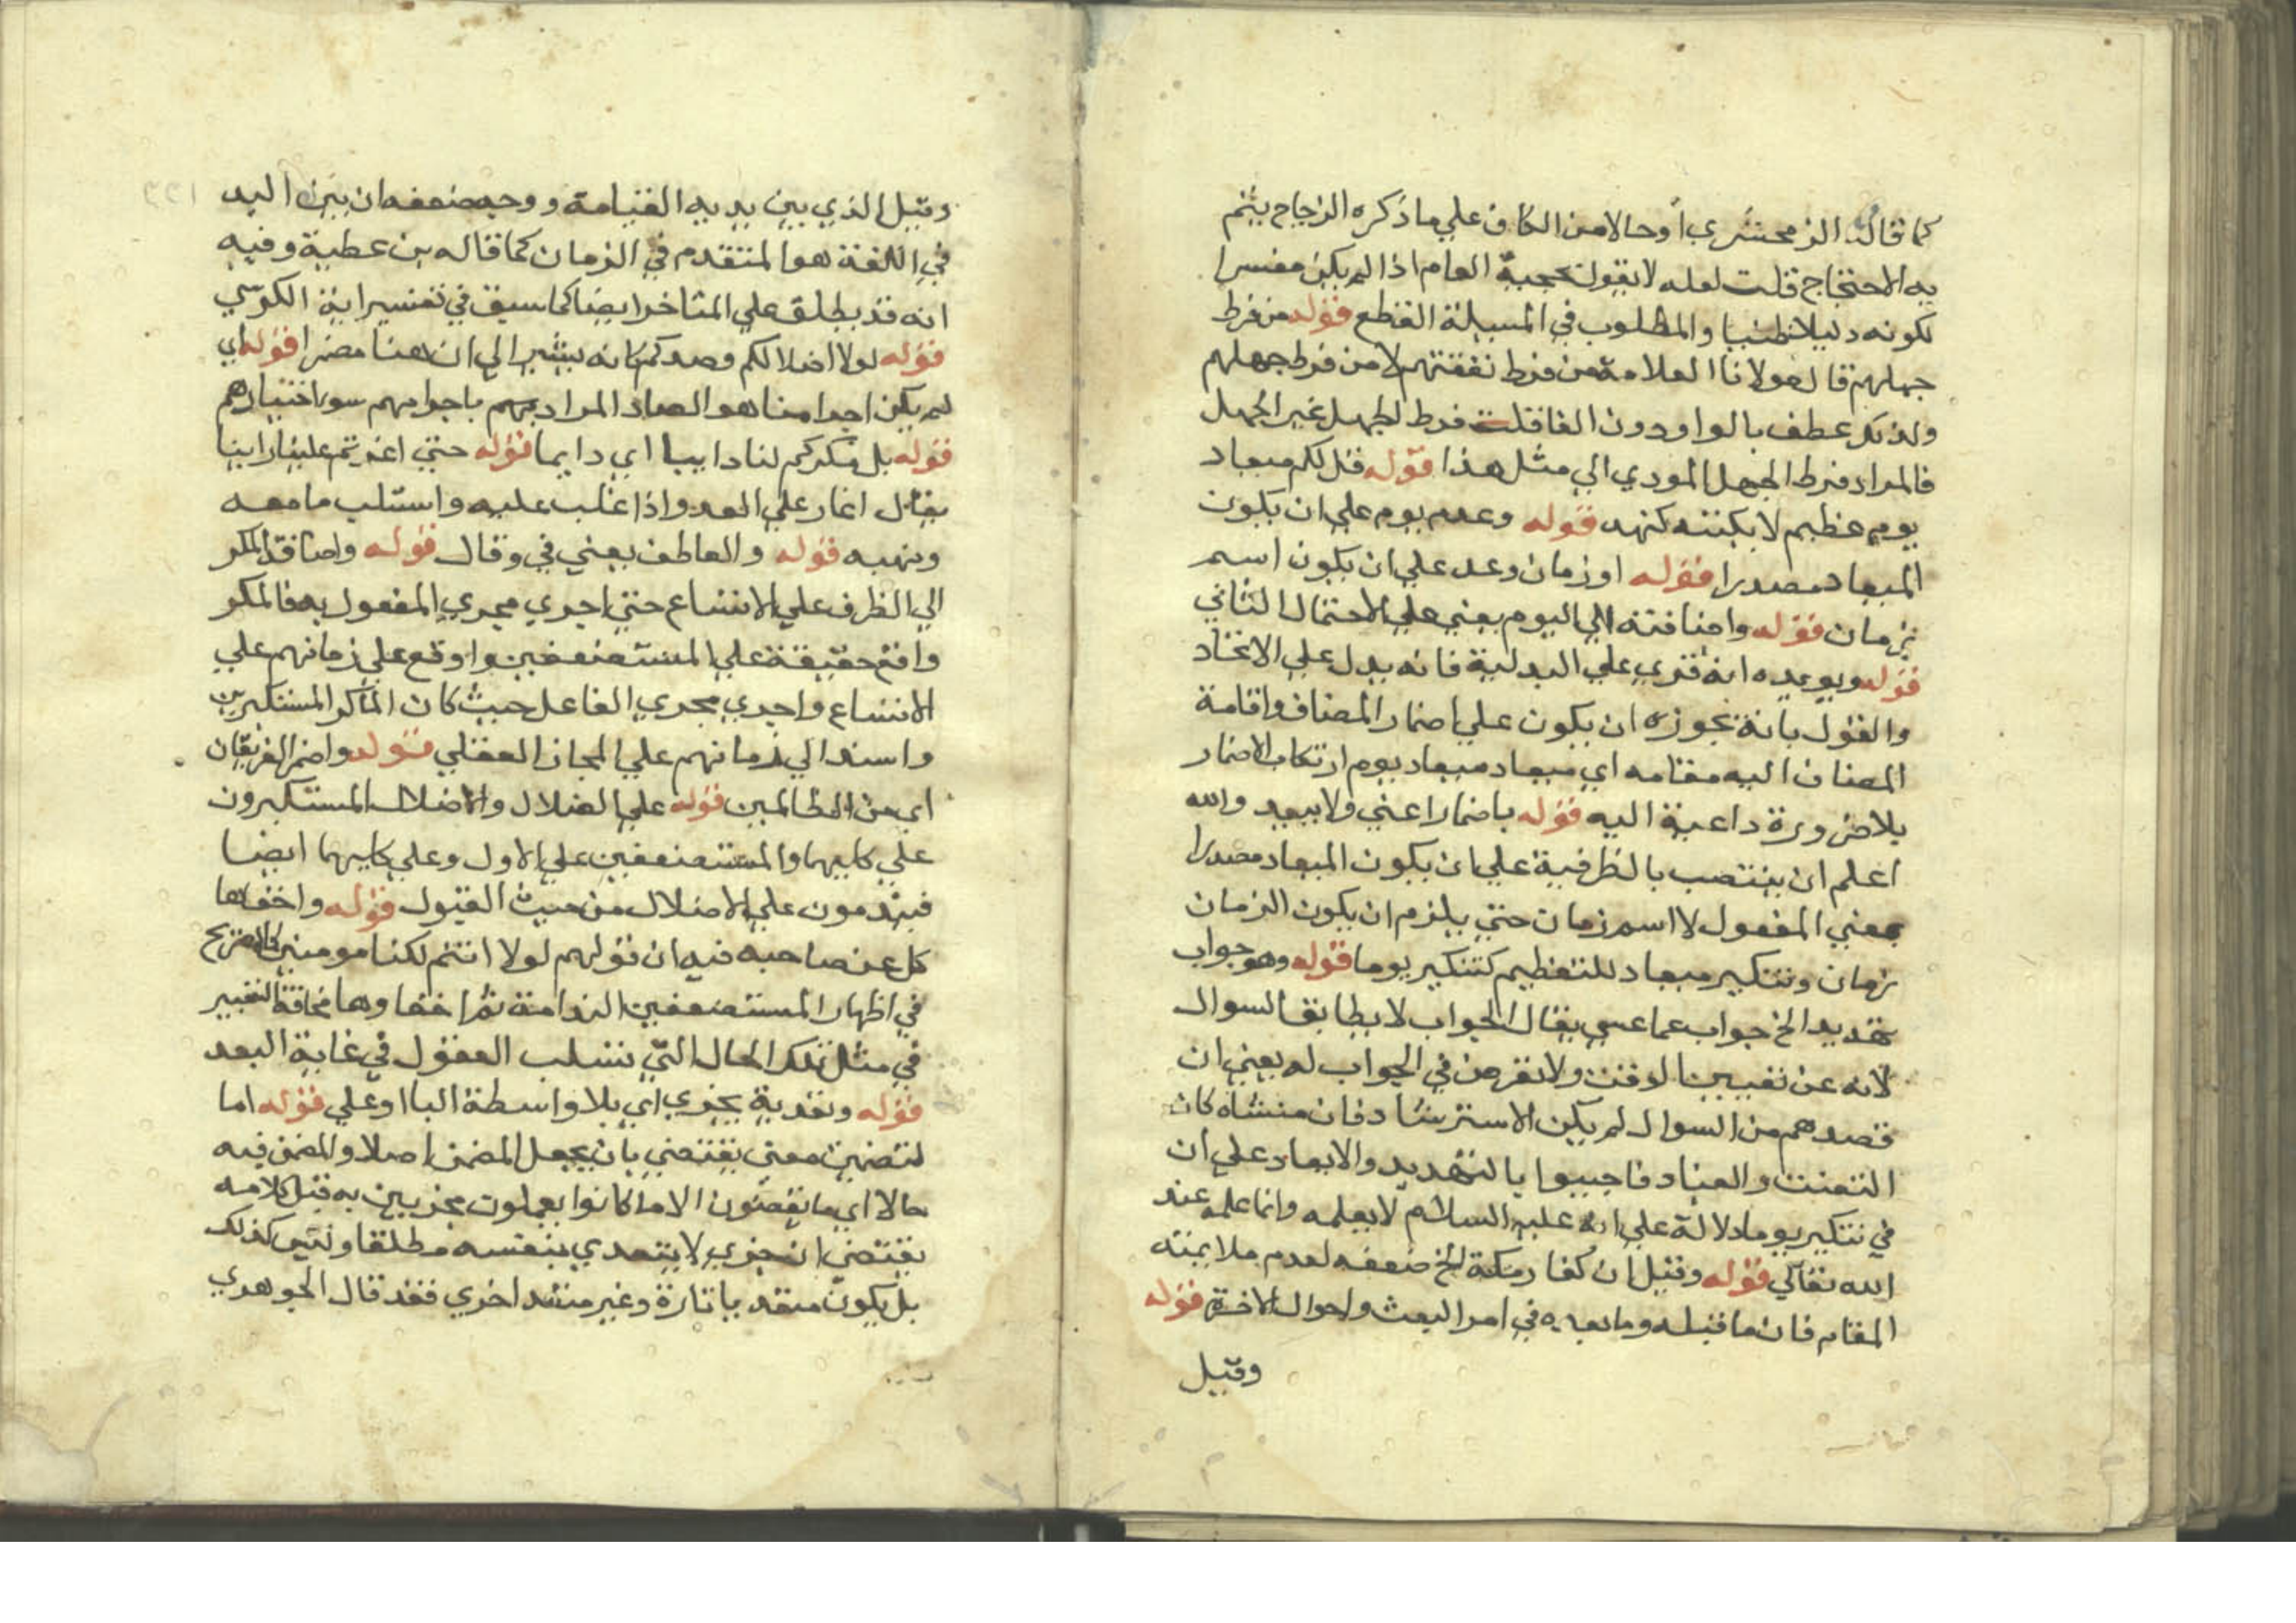 كما قاله الزمخشري أو حالا من الكاف علي ما ذكره الزجاج يتم
به الاحتجاج قلت لعله لا يقول بحجية العام اذا لم يكن مفسرا
لكونه دليلا ظنيا والمطلوب في المسيلة القطع قوله من فرط
جهلهم قال مولانا العلامة من فرط تفتنهم لا من فرط جهلهم
ولذلك عطف بالواو دون الفا قلت فرط الجهل غير الجهل
فالمراد فرط الجهل المودي الي مثل هذا قوله قل لكم ميعاد
يوم عظيم لا يكتنه كنهه قوله وعد يوم علي ان يكون
الميعاد مصدرا قوله او زمان وعد علي ان يكون اسم
زمان قوله واضافته الي اليوم يعني علي الاحتمال الثاني
قوله ويويده انه قري علي البدلية فانه يدل علي الاتحاد
والقول بانه يجوزه ان يكون علي اضمار المضاف واقامة
المضاف اليه مقامه اي ميعاد ميعاد يوم ارتكاب الاضمار
بلا ضرورة داعية اليه قوله باضمار اعني ولا يبعد والله
اعلم ان ينتصب بالظرفية علي ان يكون الميعاد مصدرا
بمعني المفعول لا اسم زمان حتي يلزم ان يكون الزمان
زمان وتنكير ميعاد للتعظيم كتنكير يوما قوله وهو جواب
تهديد الخ جواب عما عسي يقال الجواب لا يطابق السوال
لانه عن تعيين الوقت ولا تعرض في الجواب له يعني ان
قصدهم من السوال لم يكن الاسترشاد فان منشاه كان
التعنت والعناد فاجيبوا بالتهديد والايعاد علي ان
في تنكير يوما دلالة علي انه عليه السلام لا يعلمه وانما علمه عند
الله تعالي قوله وقيل ان كفار مكة الخ ضعفه لعدم ملايمته
المقام فان ما قبله وما بعده في امر البعث واحوال الاخرة قوله
وقيل
وقيل الذي بين يديه القيامة ووجه ضعفه ان بين اليد
في اللغة هو المتقدم في الزمان كما قاله بن عطية وفيه
انه قد يطلق علي المتاخر ايضا كما سبق في تفسير اية الكرسي
قوله لولا اضلالكم وصدكم كانه يشير الي ان هنا مضمرا قوله اي
لم يكن اجرامنا هو الصاد المراد بهم باجرامهم سوء اختيارهم
قوله بل مكركم لنا دايبا اي دايما قوله حتي اغرتم علينا راينا
يقال اغار علي العدو اذا غلب عليه واستلب ما معه
ونهبه قوله والعاطف يعني في وقال قوله واضافة المكر
الي الظرف علي الاتساع حتي اجري مجري المفعول به فالمكر
واقع حقيقة علي المستضعفين واوقع علي زمانهم علي
الاتساع واجري مجري الفاعل حيث كان الماكر المستكبرين
واسند الي زمانهم علي المجاز العقلي قوله واضمر الفريقان
اي من الظالمين قوله علي الضلال والاضلال المستكبرون
علي كليهما والمستضعفين علي الاول وعلي كليهما ايضا
فيندمون علي الاضلال من حيث القبول قوله واخفاها
كل عن صاحبه فيه ان قولهم لولا انتم لكنا مومنين كالصريح
في اظهار المستضعفين الندامة ثم اخفاوها مخافة التعيير
في مثل تلك الحال التي تسلب العقول في غاية البعد
قوله وتعدية يجزي اي بلا واسطة البا او علي قوله اما
لتضمين معني يقتضي بان يجعل المضمن اصلا والمضمن فيه
حالا اي ما يقضون الا ما كانوا يعملون مجزيين به قيل كلامه
يقتضي ان جزي لا يتعدي بنفسه مطلقا وليس كذلك
بل يكون متعديا تارة وغير متعد اخري فقد قال الجوهري